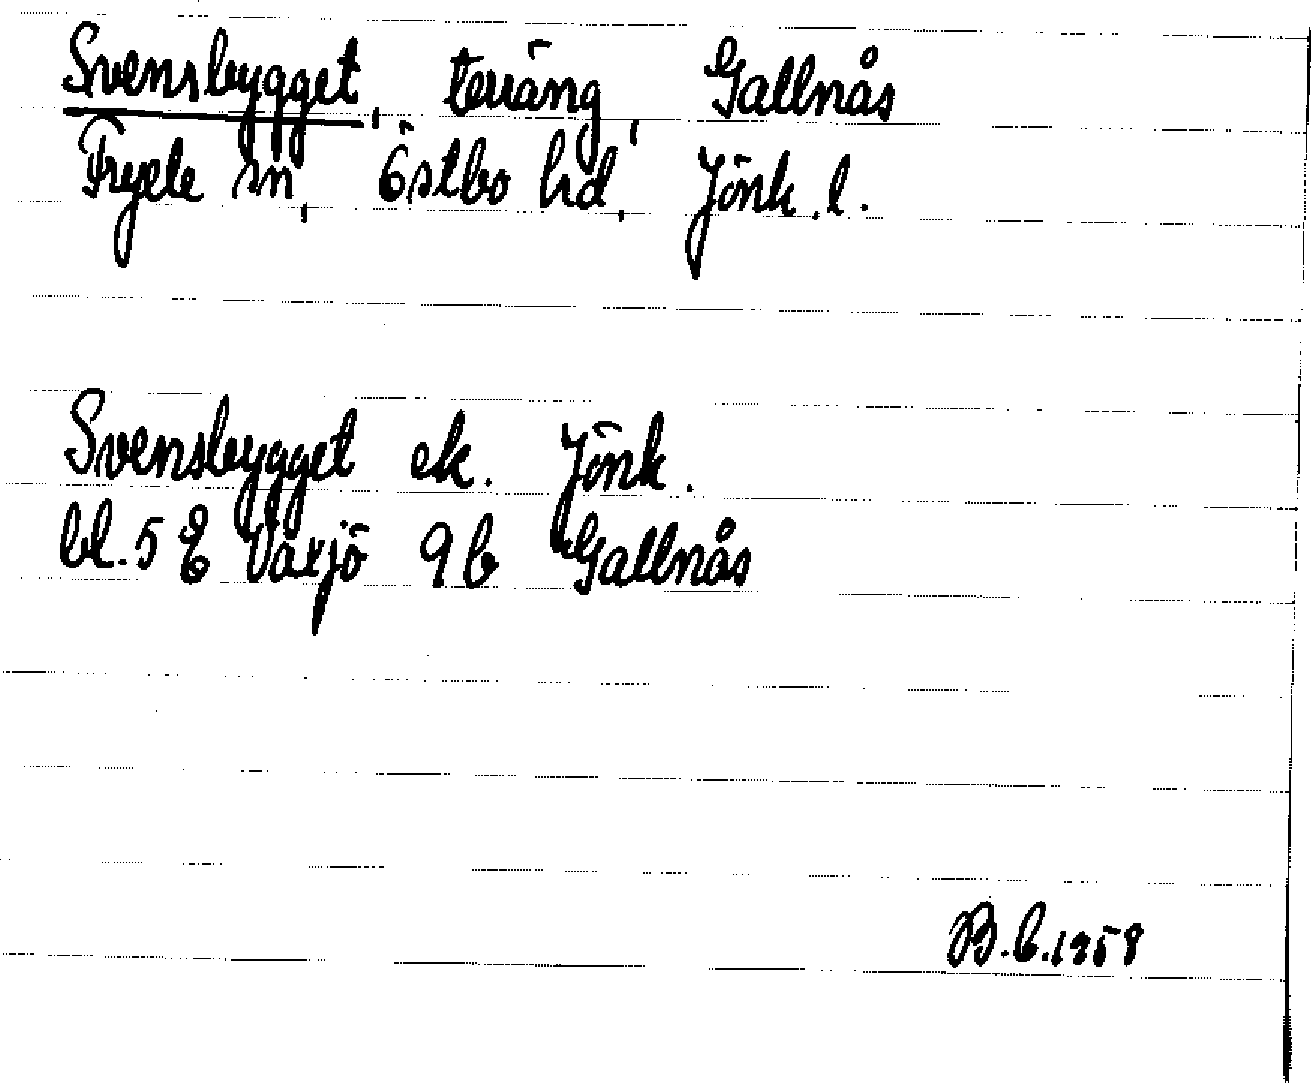 Svensbygget, terräng, Gallnås
Fryele sn, Östbo hd, Jönk. l.
Svensbygget ek. Jönk.
bl. 5 E Växjö 9 b Gallnås
B.C. 1958